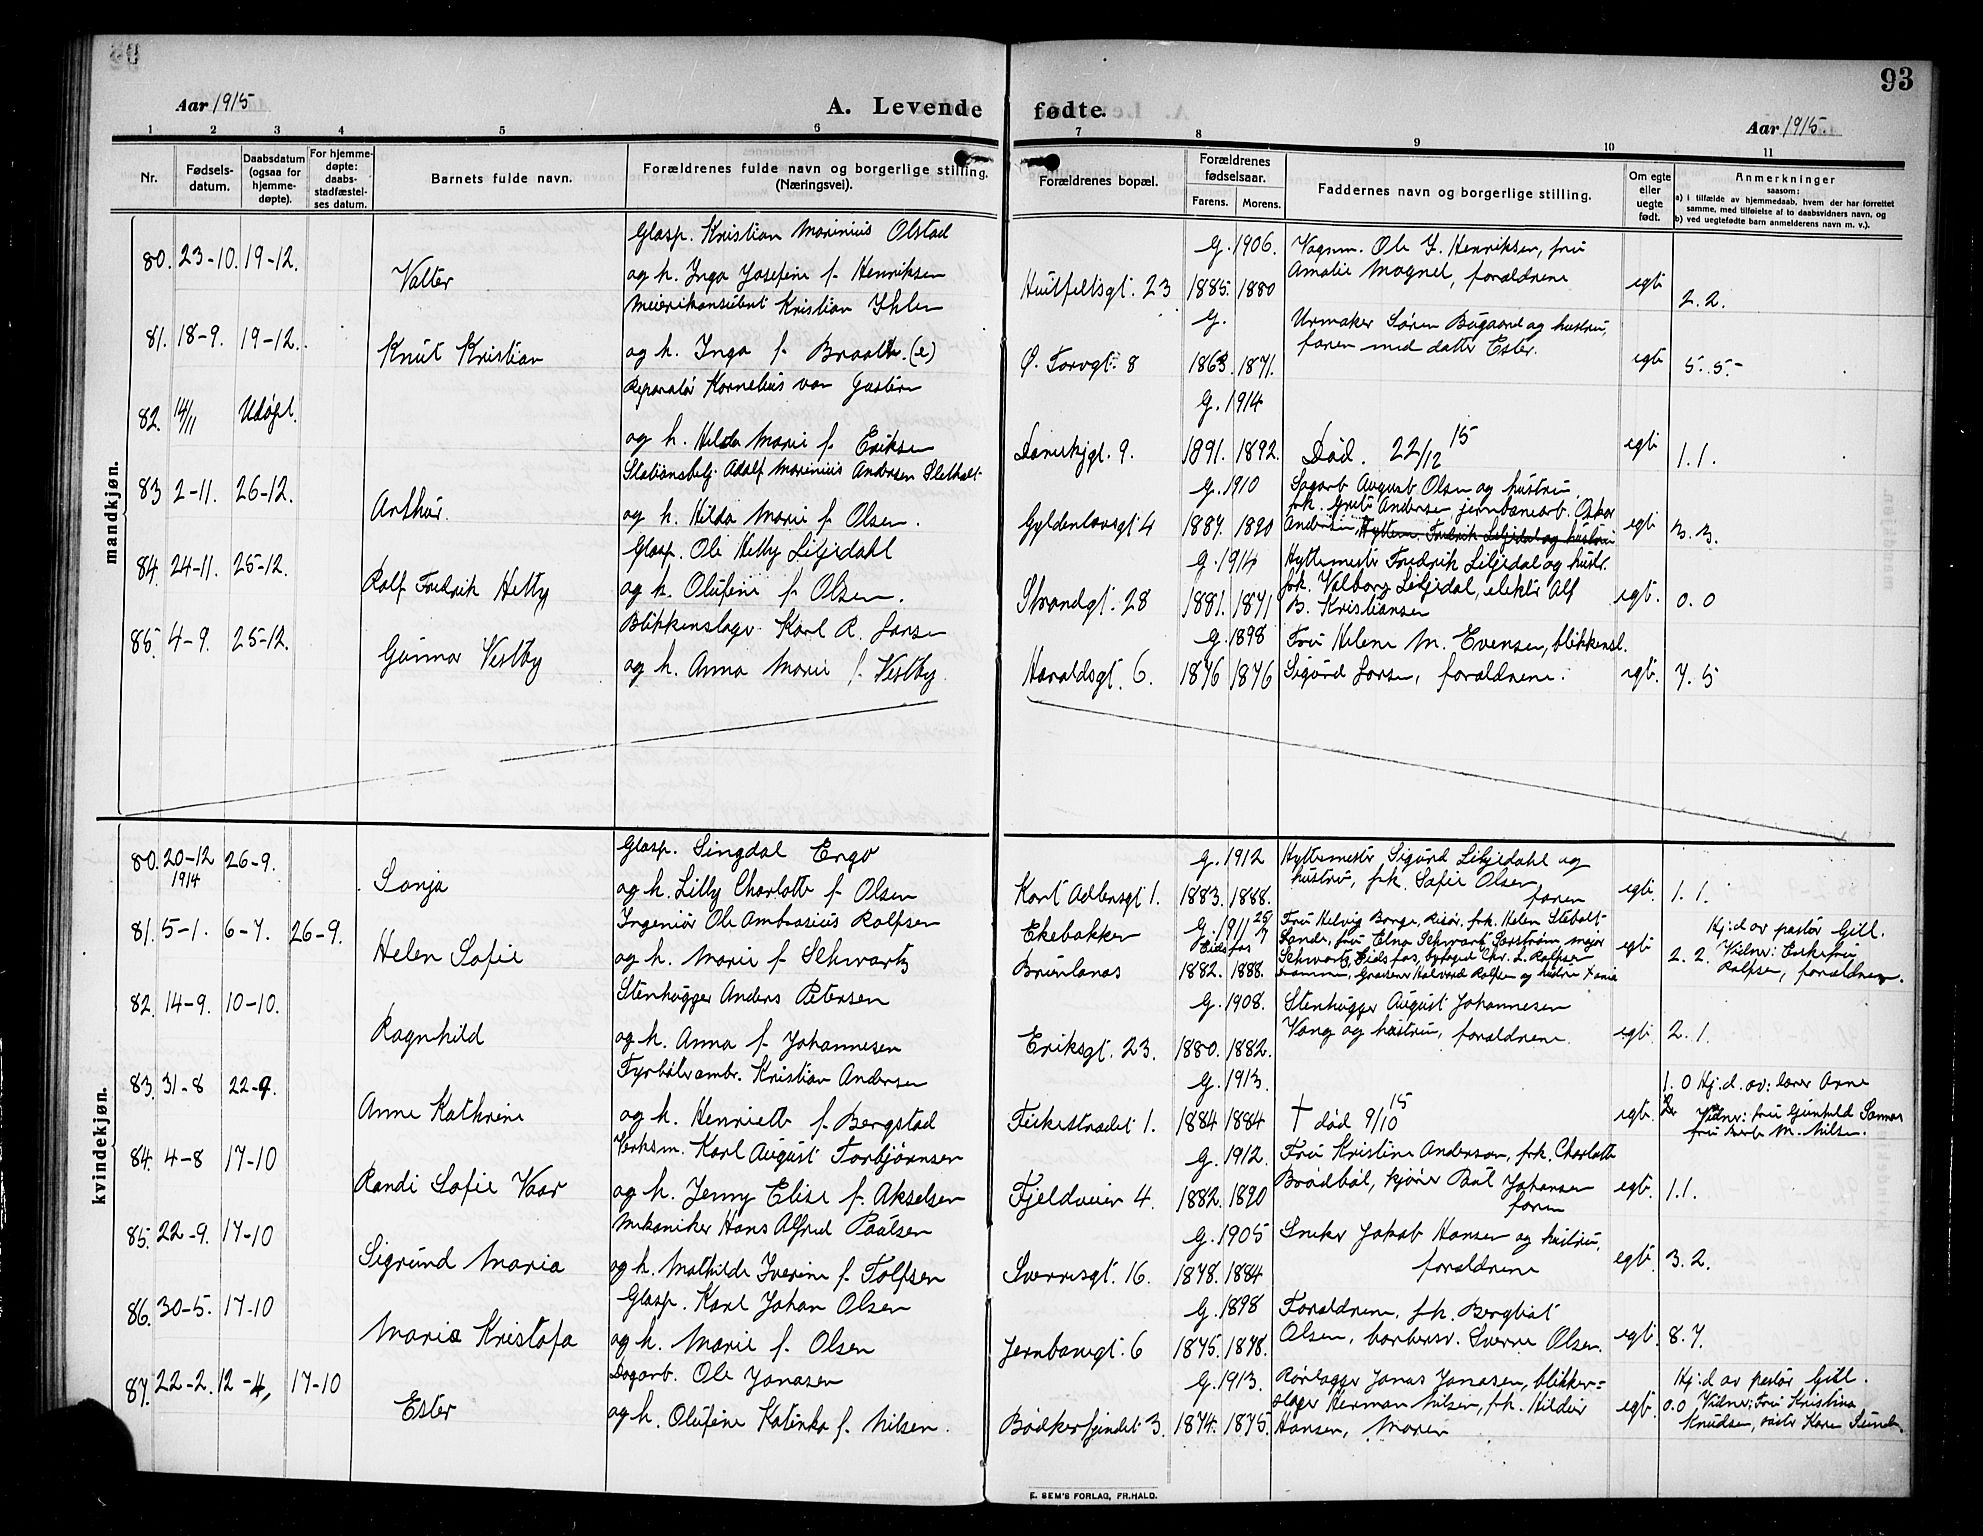 93
Aar 1915
A. Levende fødte.
Aar 1915.
1 2 3 4 5 6 7 8 9 10 11
Nr. Fødsels-datum. Daabsdatum (ogsaa for hjemme-døpte). For hjemme-døpte: daabs-stadfæstel-ses datum. Barnets fulde navn. Forældrenes fulde navn og borgerlige stilling. (Næringsvei). Forældrenes bopæl. Forældrenes fødselsaar. Farens. Morens. Faddernes navn og borgerlige stilling. Om egte eller uegte født. Anmerkninger saasom: a) i tilfælde av hjemmedaab, hvem der har forrettet samme, med tilføielse af to daabsvidners navn, og b) ved uegtefødte barn anmelderens navn m. v.).
mandkjøn.
Glasp. Kristian Marinius Olstad G. 1906. Vognm. Ole J. Henriksen, fru
80. 23-10. 19-12. Valter og h. Inga Josefine f. Henriksen Huitfeltsgt. 23 1885. 1880 Amalie Magnel, forældrene egte 2. 2.
Meierikonsulent Kristian Ihlen G. Urmaker Søren Bugaard og hustru,
81. 18-9. 19-12. Knut Kristian og h. Inga f. Braathe. (e) Ø. Torvgt. 8 1863. 1871. faren med datter Ester. egte 5. 5.-
Reparatør Kornelius van G. 1914
82. 14/11 Udøpt. og h. Hilda Marie f. Eriksen 9. 1891. 1892. Død. 22/12 15 egte 1. 1.
Stationsbetj. Adolf Marinius Andersen G. 1910 Sagarb. August Olsen og hustru,
83 2-11. 26-12. Arthur. og h. Hilda Marie f. Olsen. Gyldenløvsgt 4 1887. 1890 frk. Grete Andersen jernbanearb. Oskar
Andersen Hyttem. Fredrik Liljedal og hustru egte 3. 3.
Glasp. Ole Hetty Liljedahl G. 1914 Hyttemester Fredrik Liljedal og hustr.
84. 24-11. 25-12. Rolf Fredrik Hetty og h. Olufine f. Olsen. Strandgt. 28 1881. 1871 frk. Valborg Liljedal, elektr Alf
B. Kristiansen egte. 0. 0
Blikkenslager Karl R. Larsen G. 1898 Fru Helene M. Evensen, blikkensl.
85. 4-9. 25-12. Gunnar Vestby og h. Anna Marie f. Vestby. Haraldsgt. 6. 1876 1876 Sigurd Larsen, forældrene. egte. 7. 5
kvindekjøn.
Glasp. Singdal Ergo G. 1912 Hyttemester Sigurd Liljedahl og
80. 20-12 1914 26-9. Sonja og h. Lilly Charlotte f. Olsen Kort Adlersgt 1. 1883. 1888. hustru, frk. Sofie Olsen faren egte 1. 1.
Ingeniør Ole Ambrosius Rolfsen Ekebakken G. 1911 25/7 Fru Helvig Borge, Risør, frk. Helen Hj:d av pastor Gill.
81. 5-1. 6-7. 26-9. Helen Sofie og h. Marie f Schwartz Brunlanes 1882. 1888. Sande, fru Elna Schwartz major
Schwartz, Eidsfos, byfoged Chr. L. Rolfsen egte 2. 2. Vidner: Enkefru
og hustru Kr.ania Rolfsen, forældrene.
Stenhugger Anders Petersen G. 1908. Stenhugger August Johannesen
82. 14-9. 10-10. Ragnhild og h. Anna f. Johannesen Eriksgt. 23. 1880. 1882. Vang og hustru, forældrene. egte. 2. 1.
Fyrbøter Kristian Andersen G. 1913. 1. 0 Hj. d. av: lærer Arne
83. 31-8 22-9. Anne Kathrine og h. Henriette f. Bergstad Feierstrædet 1. 1884 1884 † død 9/10 15 egte. Vidner: fru Gunhild Sannes
fru M. Nilsen.
Verksm. Karl August Torbjørnsen G. 1912. Fru Kristine Anderson, frk. Charlotte
84. 4-8 17-10 Randi Sofie Vaar og h. Jenny Elise f. Akselsen Fjeldveien 4. 1882. 1890 Brødbøl, kjører Johansen faren egte. 1. 1.
Mekaniker Hans Alfred Paulsen G. 1905 Snekker Jakob Hansen og hustru,
85. 22-9. 17-10 Sigrund Maria og h. Mathilde Iverine f. Tolfsen Sverresgt. 16. 1878. 1884 forældrene egte. 3. 2.
Glasp. Karl Johan Olsen G. 1898 Forældrene, frk. Bergliot
86. 30-5. 17-10 Maria Kristofa og h. Marie f. Olsen Jernbanegt. 6 1875. 1878. Olsen, barbersv. Sverre Olsen. egte. 8. 7.
Dagarb. Ole Jonasen G. 1913. Rørlægger Jonas Jonasen, blikken= Hj:d av pastor Gill.
87. 22-2. 12-4, 17-10 Ester og h. Olufine Katinka f. Nilsen. Bødkerfjeldet 3. 1874. 1875. slager Herman Nilsen, frk. Hildur egte. 0.0 Vidner: Fru Kristina
Hansen, Moren Knudsen, Karen
E. SEM'S FORLAG, FR.HALD.